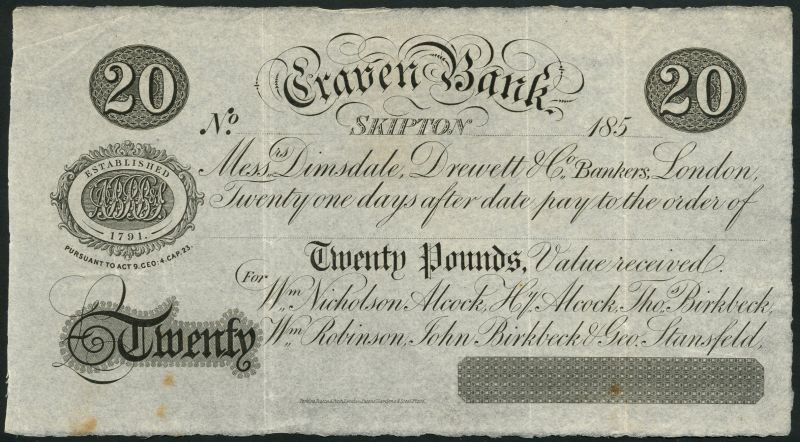 20
Craven Bank.
20
No.
SKIPTON
185
ESTABLISHED
1791.
PURSUANT TO ACT 9. GEO: 4. CAP. 23.
Messrs. Dimsdale, Drewett & Co. Bankers, London,
Twenty one days after date pay to the order of
Twenty Pounds, Value received.
For
Wm. Nicholson Alcock, Hy. Alcock, Thos. Birkbeck,
Wm. Robinson, John Birkbeck & Geo. Stansfeld,
Twenty